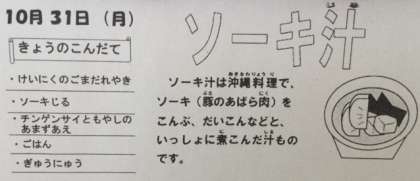 10月31日（月）
きょうのこんだて
・けいにくのごまだれやき
・ソーキじる
・チンゲンサイともやしの
あまずあえ
・ごはん
・ぎゅうにゅう
ソーキ汁
ソーキ汁は沖縄料理で、
ソーキ（豚のあばら肉）を
こんぶ、だいこんなどと、
いっしょに煮こんだ汁もの
です。